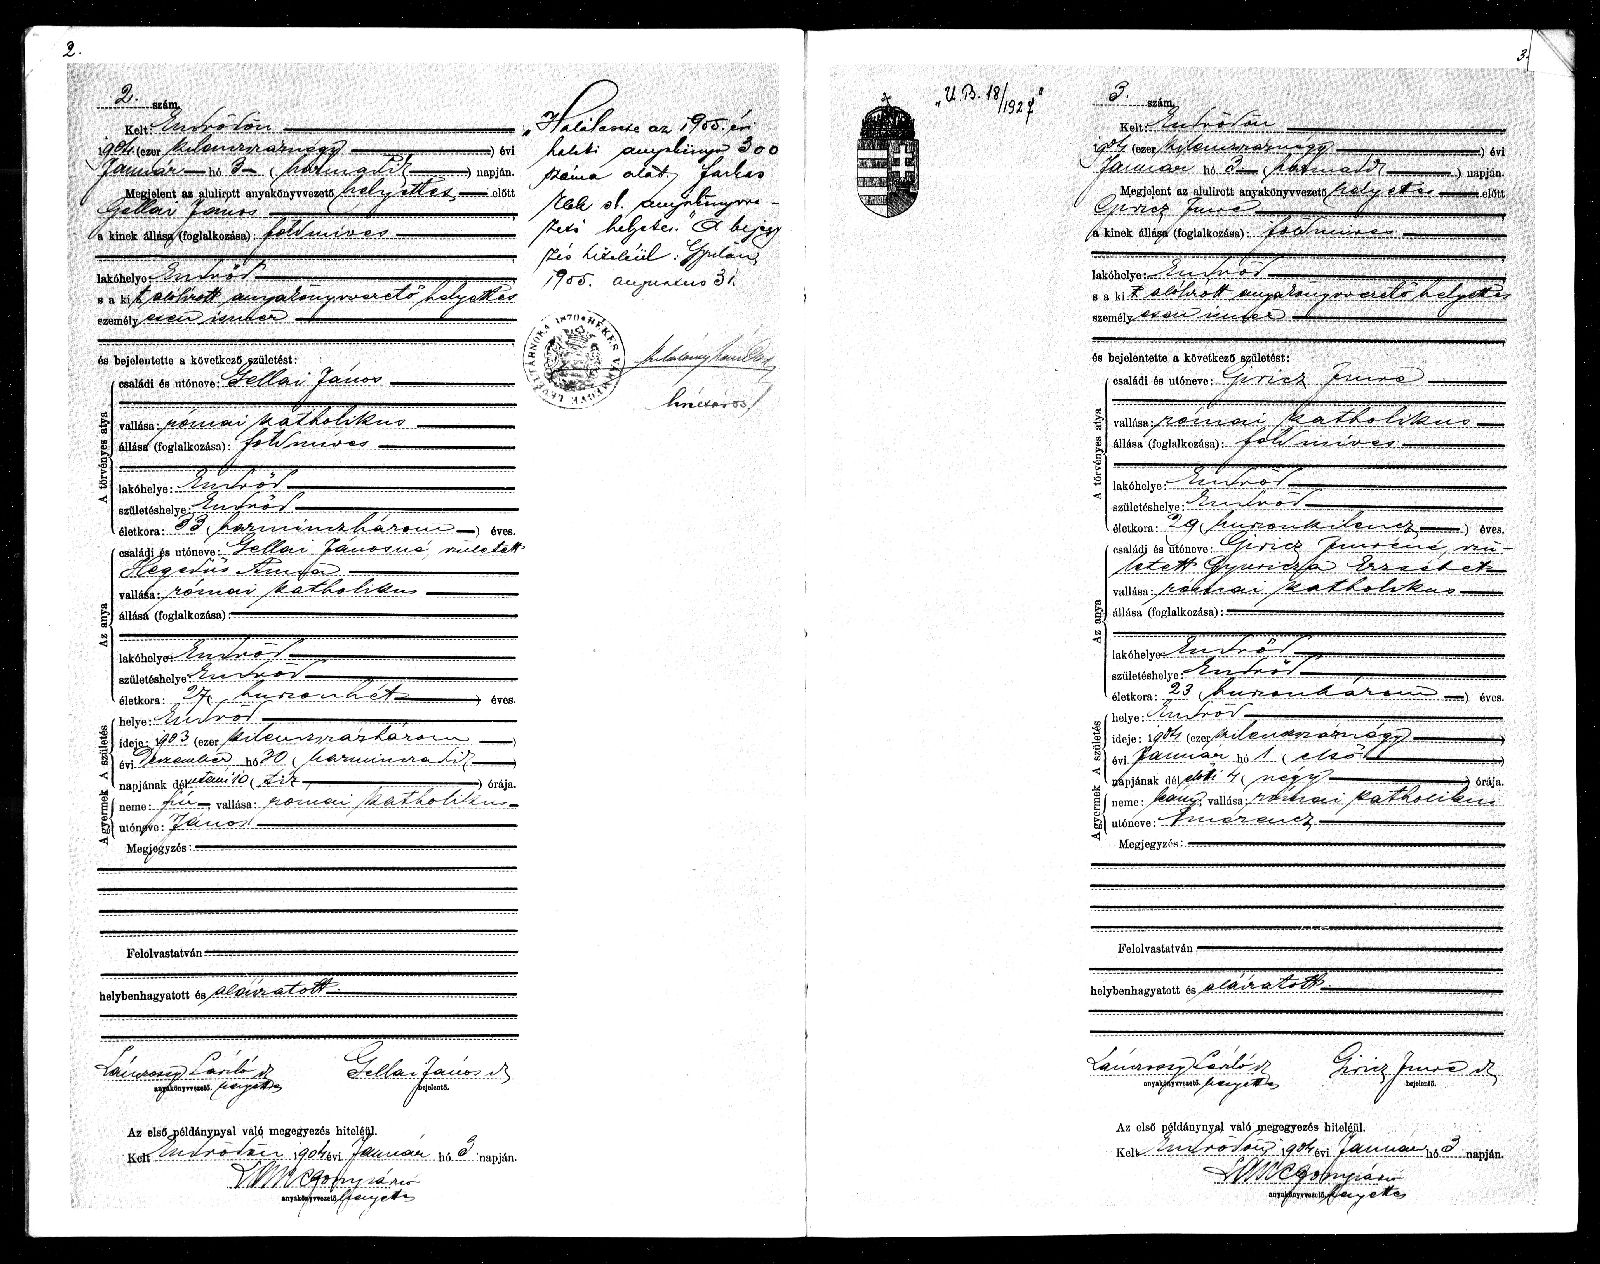 2.
2. szám.
Kelt: Endrődön
1904 (ezer kilenczszáznégy) évi
Január hó 3 (harmadik) napján.
Megjelent az alulirott anyakönyvvezető helyettes előtt
Gellai János
a kinek állása (foglalkozása): földmives
lakóhelye: Endrőd
s a kit alólirott anyakönyvvezető helyettes
személyesen ismer
és bejelentette a következő születést:
A törvényes atya
családi és utóneve: Gellai János
vallása: római katholikus
állása (foglalkozása): földmives
lakóhelye: Endrőd
születéshelye: Endrőd
életkora: 33 (harminczhárom) éves.
Az anya
családi és utóneve: Gellai Jánosné, született
Hegedüs Anna
vallása: római katholikus
állása (foglalkozása):
lakóhelye: Endrőd
születéshelye: Endrőd
életkora: 27 (huszonhét) éves.
A gyermek A születés
helye: Endrőd
ideje: 1903 (ezer kilenczszázhárom)
évi Deczember hó 30 (harminczadik)
napjának délutáni 10 (tiz) órája.
neme: fiu, vallása: római katholikus
utóneve: János
Megjegyzés:
Felolvastatván
helybenhagyatott és aláiratott.
László
János
anyakönyvvezető. helyettes
Gellai János
bejelentő.
Az első példánynyal való megegyezés hiteléül.
Kelt Endrődön 1904 évi Január hó 3 napján.
anyakönyvvezető helyettes
„Halálesete az 1905. évi
halotti anyakönyv 300
száma alatt, Farkas
h. anyakönyvve-
zető helyettes." A bejegy
zés hiteléül: Gyulán,
1905. augusztus 31.
BÉKÉS VÁRMEGYE LEVÉLTÁRNOKA 1870
3.
"U. B. 18/1927"
3. szám.
Kelt: Endrődön
1904 (ezer kilenczszáznégy) évi
Január hó 3 (harmadik) napján.
Megjelent az alulirott anyakönyvvezető helyettes előtt
Giricz Imre
a kinek állása (foglalkozása): földmives
lakóhelye: Endrőd
s a kit alólirott anyakönyvvezető helyettes
személyesen ismer
és bejelentette a következő születést:
A törvényes atya
családi és utóneve: Giricz Imre
vallása: római katholikus
állása (foglalkozása): földmives
lakóhelye: Endrőd
születéshelye: Endrőd
életkora: 29 (huszonkilencz) éves.
Az anya
családi és utóneve: Giricz Imréné, szü-
letett Gyuricza Erzsébet
vallása: római katholikus
állása (foglalkozása):
lakóhelye: Endrőd
születéshelye: Endrőd
életkora: 23 (huszonhárom) éves.
A gyermek A születés
helye: Endrőd
ideje: 1904 (ezer kilenczszáznégy)
évi Január hó 1 (első)
napjának délelőtti 4 (négy) órája.
neme: leány, vallása: római katholikus
utóneve:
Megjegyzés:
Felolvastatván
helybenhagyatott és aláiratott.
László
anyakönyvvezető. helyettes
Giricz Imre
bejelentő.
Az első példánynyal való megegyezés hiteléül.
Kelt Endrődön, 1904 évi Január hó 3 napján.
anyakönyvvezető helyettes